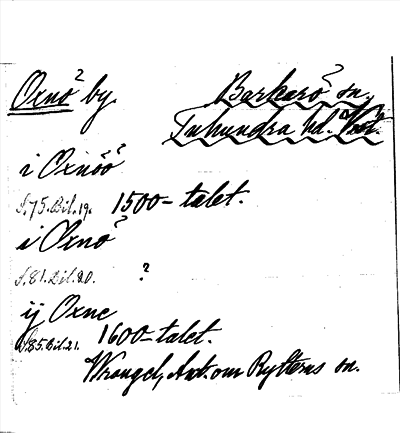 Oxnö by Barkarö sn.
Tuhundra hd. Vstm.
i Oxnöö
S.75.Bil.19. 1500-talet.
i Oxnö
S.81.Bil.20. ?
ij Oxne
S.85.Bil.21. 1600-talet.
Wrangel, Ant. om Rytterns sn.